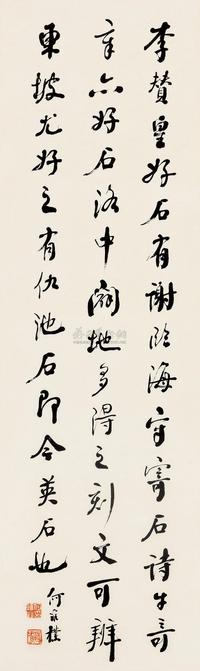 李赞皇好石有谢临海守寄石诗牛奇
章亦好石洛中阙地多得之刻文可辨
東坡尤好之有仇池石即今英石也
何永樸